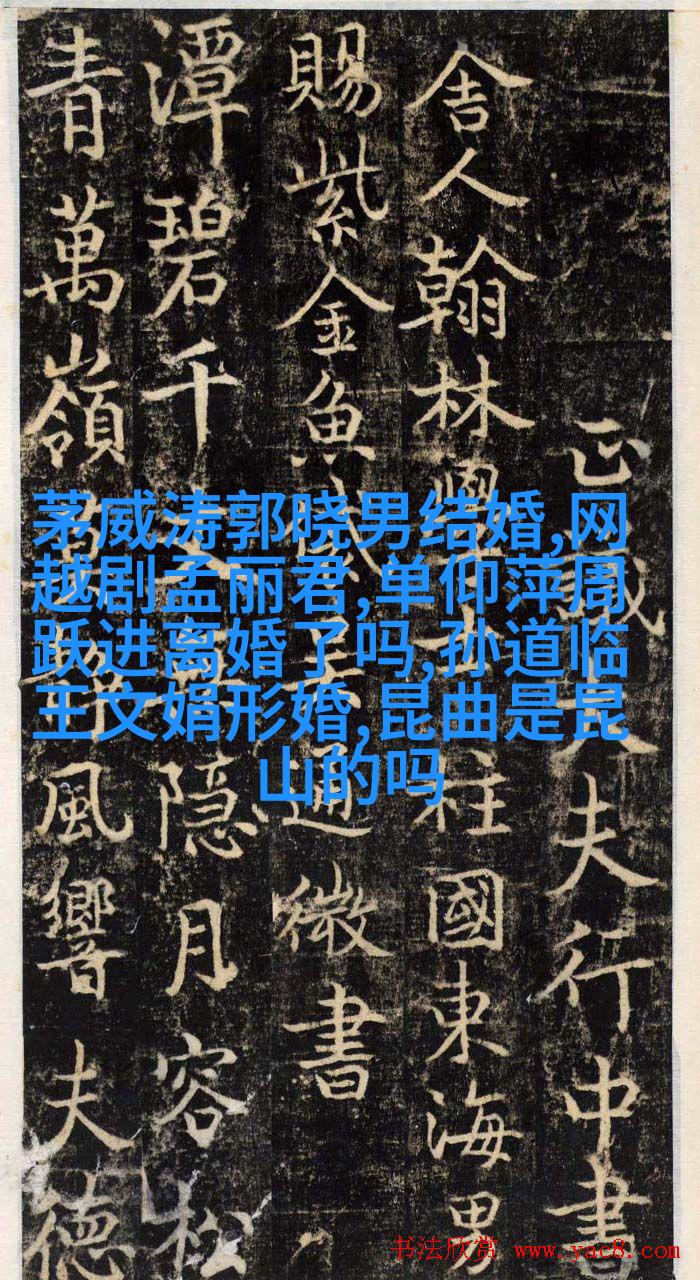 正議大夫行中書
舍人翰林學士上柱國東海男
賜紫金魚袋通微書
潭碧千丈隐月容松
青萬嶺風響夫德
茅威涛郭晓男结婚,网
越剧孟丽君,单仰萍周
跃进离婚了吗,孙道临
王文娟形婚,昆曲是昆
山的吗
书法欣赏 www.yac8.com